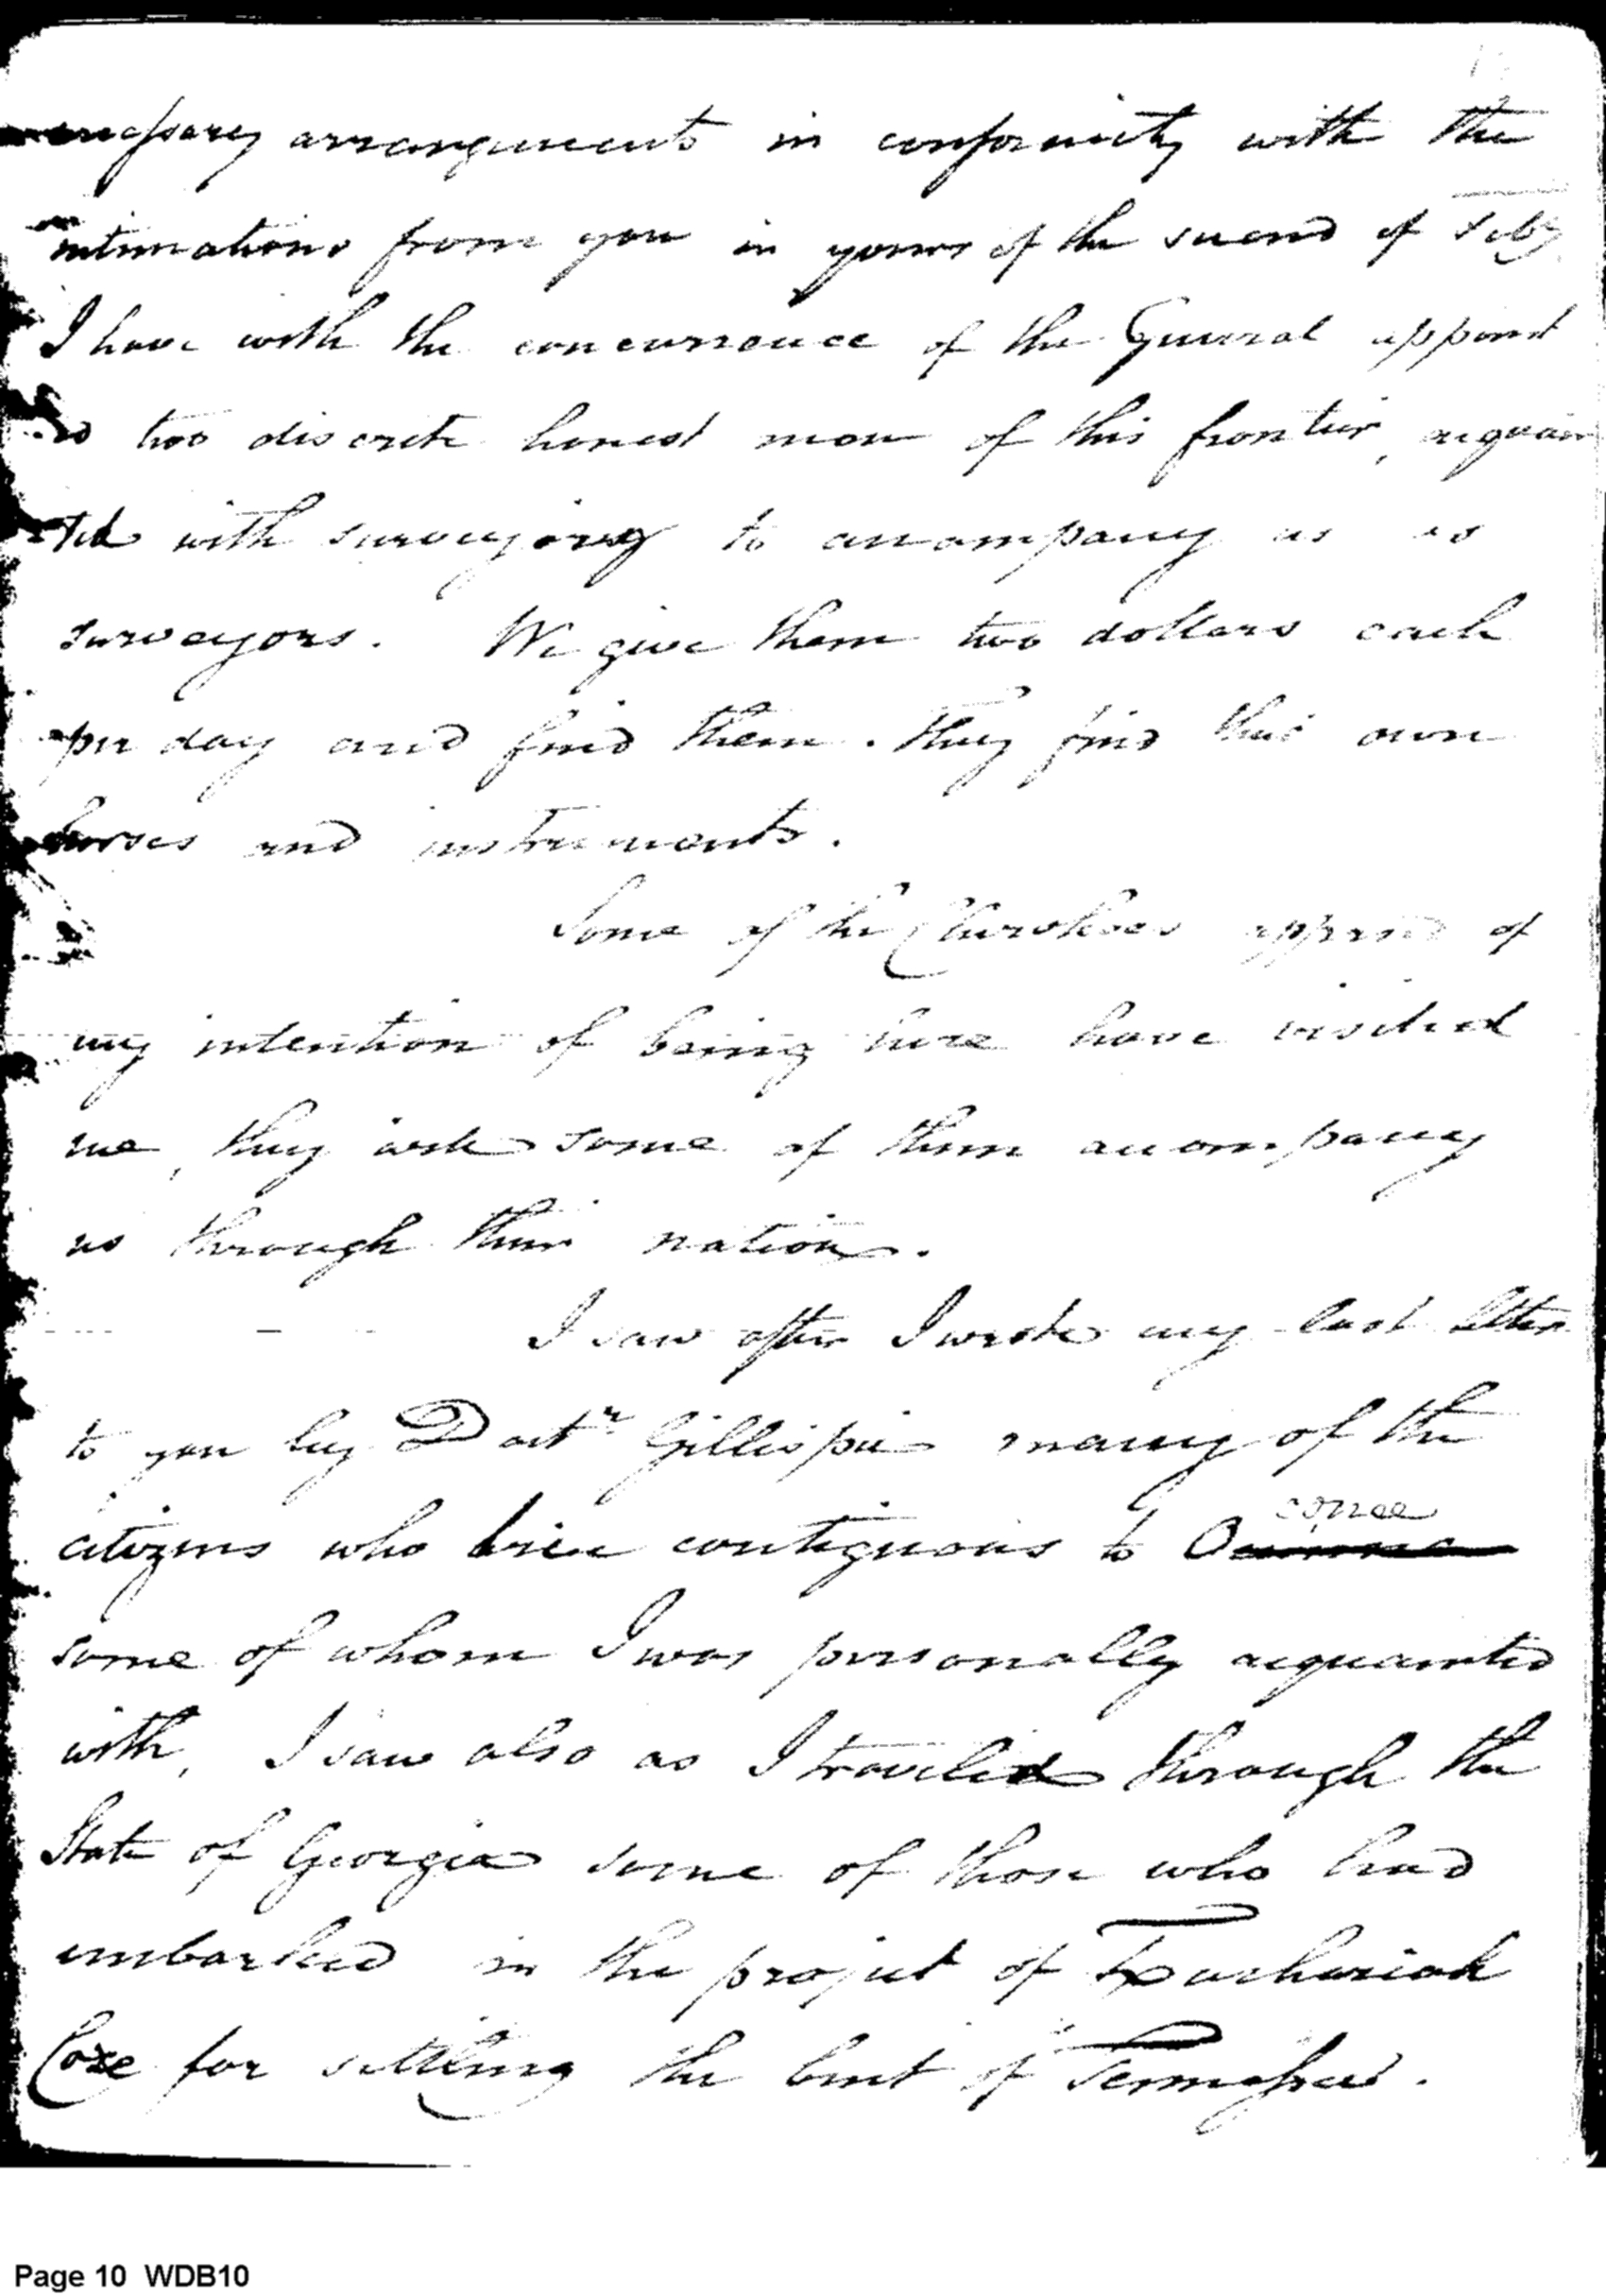 necessary arrangements in conformity with the
intimations from you in yours of the second of Feby
I have with the concurrence of the General appoint
ed two discrete honest men of this frontier, acquain
ted with surveying to accompany us as
surveyors. We give them two dollars each
per day and find them. They find their own
horses and instruments.
Some of the Cherokees apprised of
my intention of being here have visited
me, they wish some of them accompany
us through their nation.
I saw after I wrote my last letter
to you by Doctr Gillispie many of the
citizens who live contiguous to Oconee
some of whom I was personally acquainted
with, I saw also as I traveled through the
State of Georgia some of those who had
embarked in the project of Zachariah
Coxe for settling the bent of Tennessee.
Page 10 WDB10